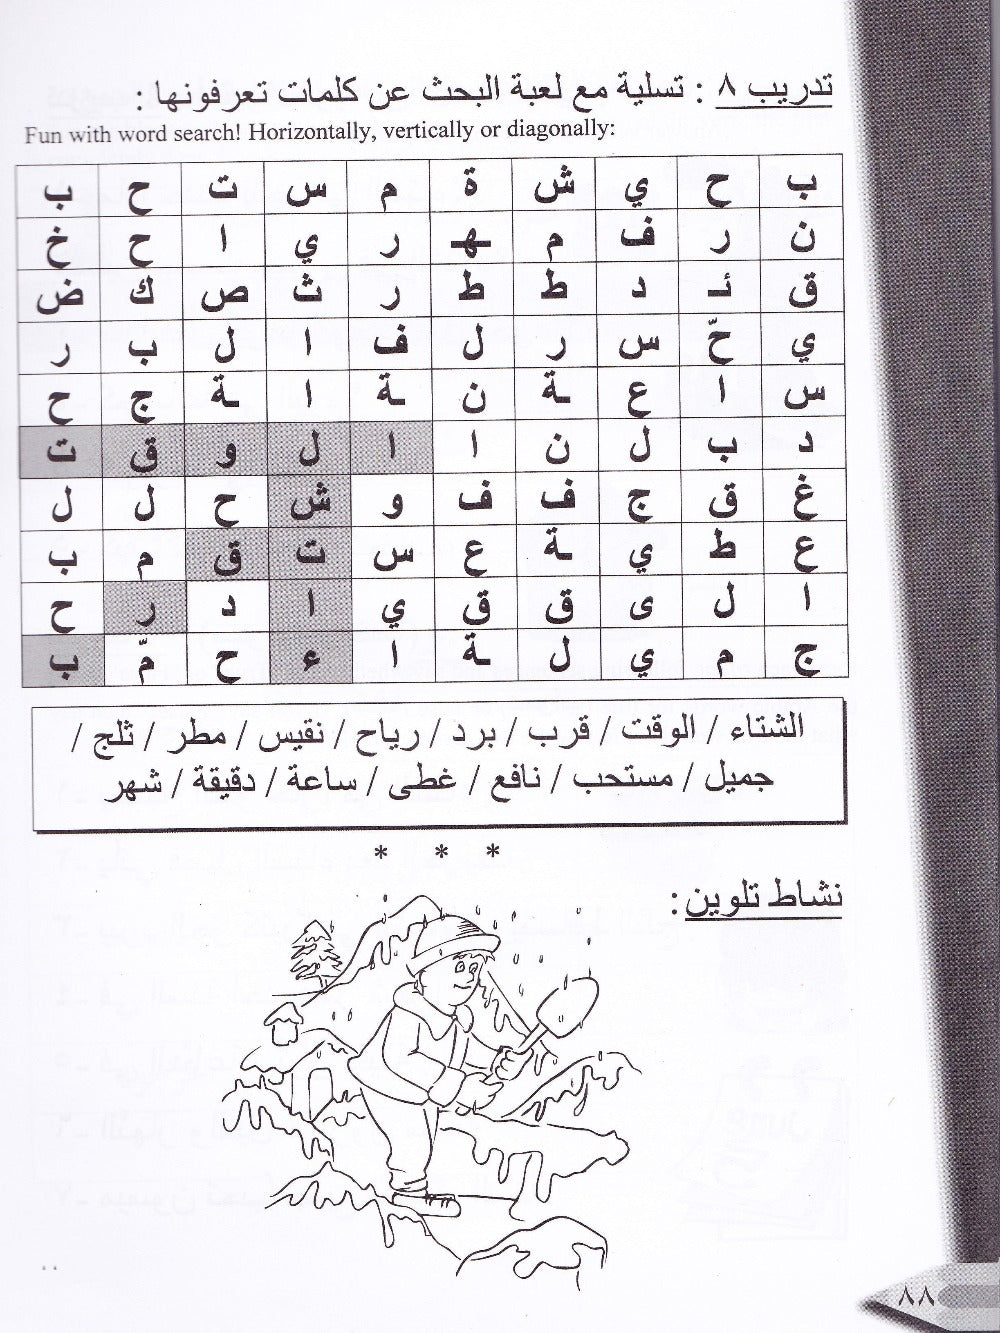 تدريب ٨ : تسلية مع لعبة البحث عن كلمات تعرفونها :
Fun with word search! Horizontally, vertically or diagonally:
ب ح ي ش ة م س ت ح ب
ن ر ف م ـهـ ر ي ا ح خ
ق ئـ د ط ط ر ث ص ك ض
ي حّ س ر ل ف ا ل ب ر
س ا ع ـة ن ـة ا ـة ج ح
د ب ل ن ا ا ل و ق ت
غ ق ج ف ف و ش ح ل ل
ع ط ي ـة ع س ت ق م ب
ا ل ى ق ق ي ا د ر ح
ج م ي ل ـة ا ء ح مّ ب
الشتاء / الوقت / قرب / برد / رياح / نقيس / مطر / ثلج /
جميل / مستحب / نافع / غطى / ساعة / دقيقة / شهر
* * *
نشاط تلوين :
٨٨